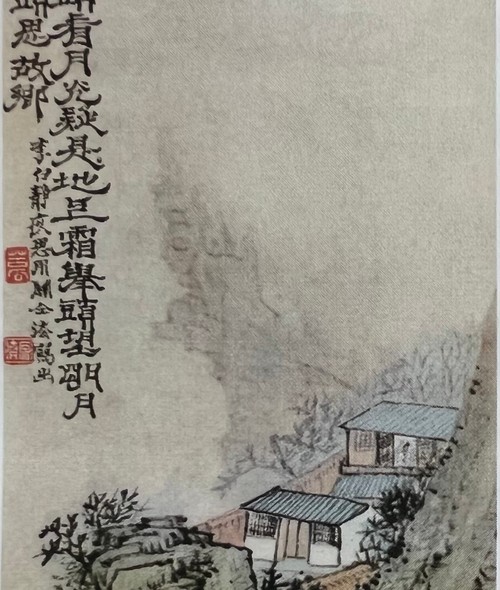 看月光疑是地上霜舉頭望明月
頭思故鄉
李白靜夜思用關仝法寫出